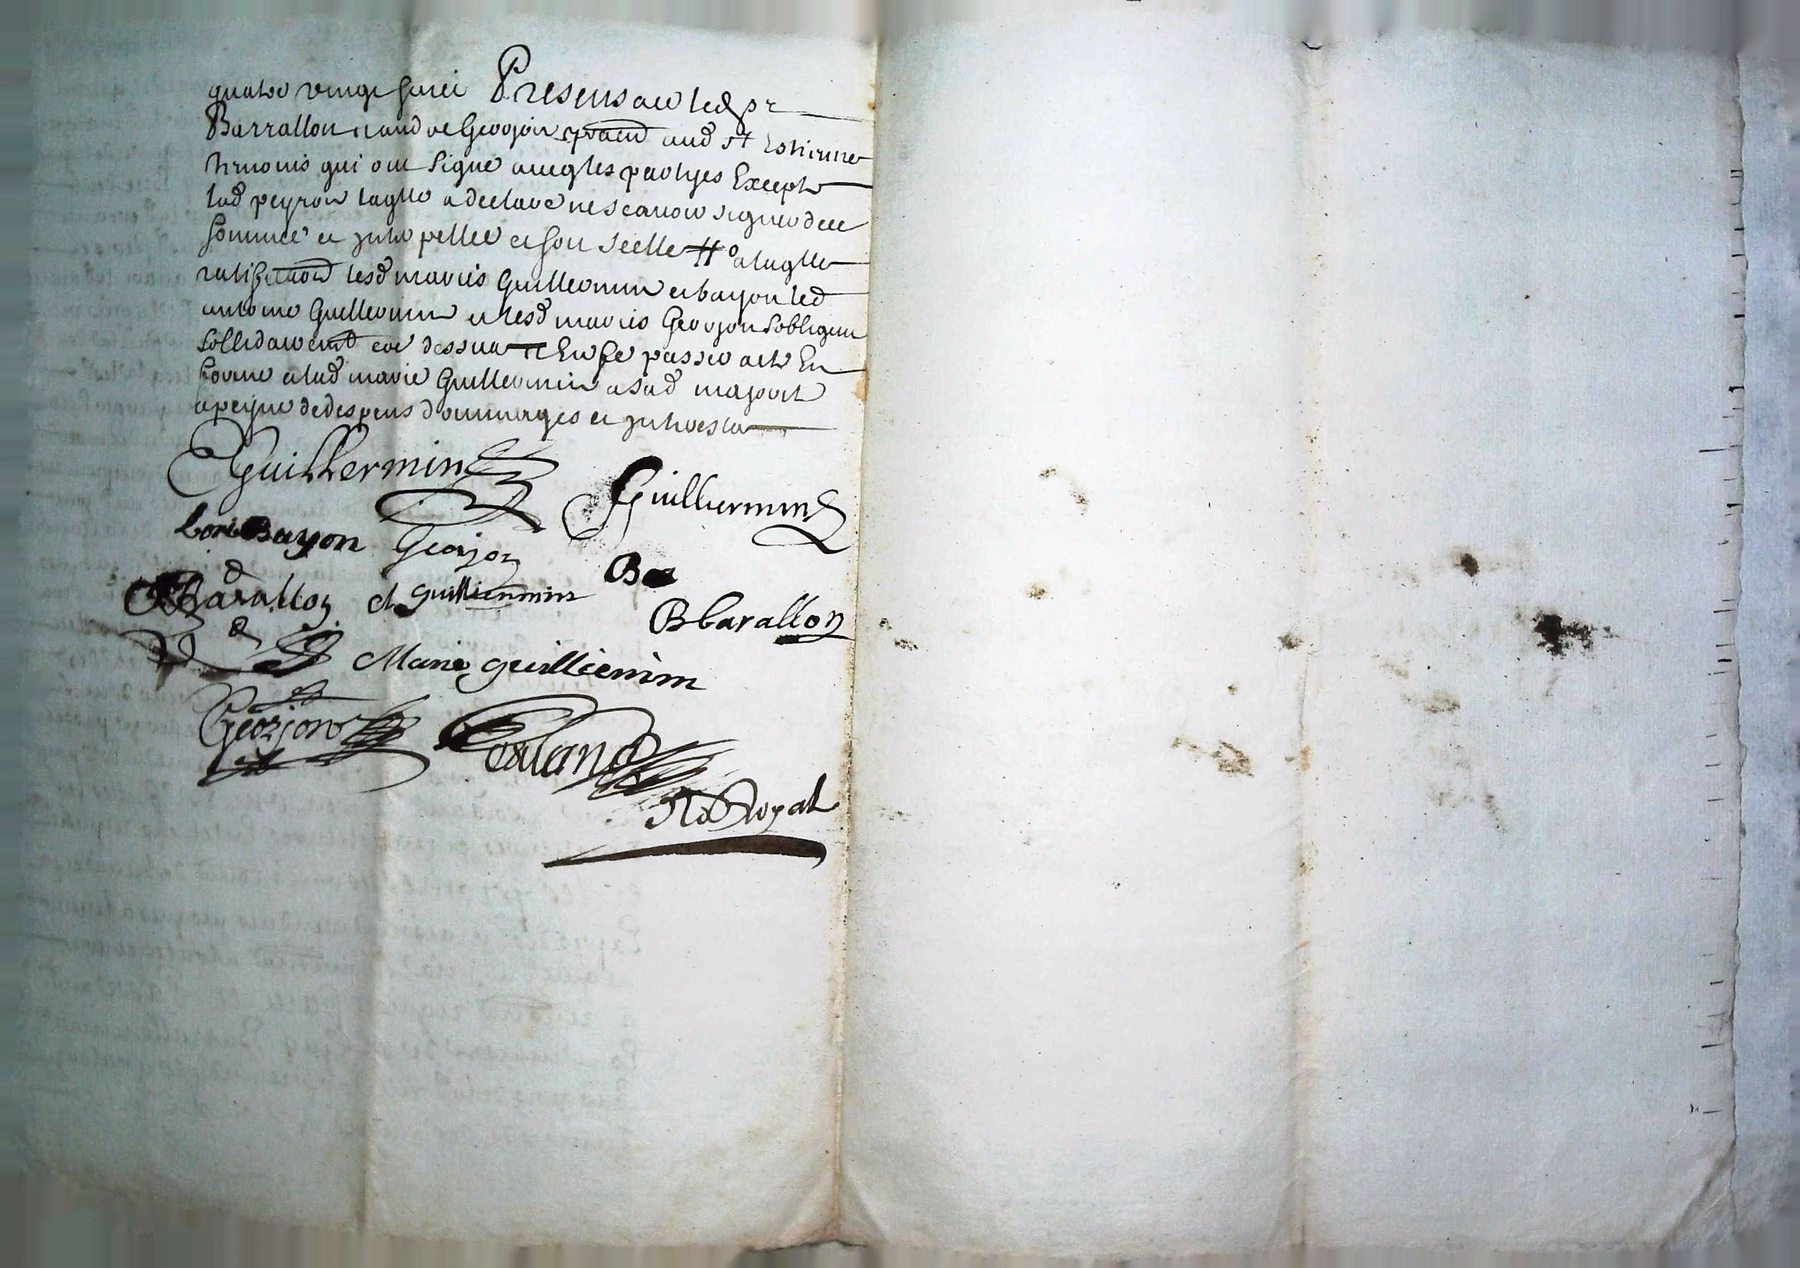 quatre vingt Presens au led sr
Barrallon et andre Georjon praticien aud st Estienne
tesmoins qui ont signe avecq les partyes Excepte
lad peyron laqlle a declare ne scavoir signer de ce
sommée et interpellee et son scelle # a laqlle
ratification lesd maries Guillermin et bayon led
antoine Guillermin et lesd maries Georjon sobligent
sollidairemt come dessus et En fe passer acte En
forme a lad marie Guillermin a sad majorite
a peyne de despens dommages et interestz
Guillermin Guilliermin
Bayon Georjon
Barallon et guilliermin Ba
B barallon
Marie guilliermin
Georjon
Royal